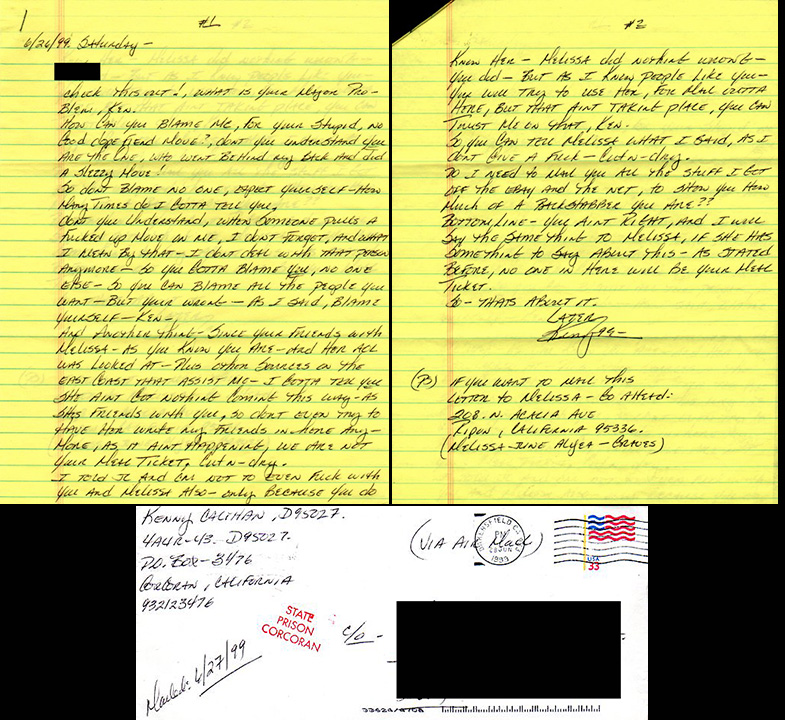 1
#1
6/26/99. Saturday -
check this out!, what is your Major Pro-
blem, Ken.
How can you Blame Me, for your stupid, no
Good dopefiend Move?, dont you understand you
are the one, who went Behind my Back and did
a sleezy Move!
So dont Blame no one, expect yourself - How
Many Times do I Gotta tell you.
dont you Understand, when someone pulls a
Fucked up Move on me, I dont Forget, and what
I mean By that - I dont deal with that person
Anymore - so you Gotta Blame you, no one
else - so you can Blame all the people you
want - But your wrong - As I said, Blame
yourself - Ken -
And Another thing - Since your Friends with
Melissa - as you know you are - and Her
was looked at - Plus other sources on the
East Coast that assist Me - I Gotta tell you
she aint Got nothing coming this way - as
shes Friends with you, so dont even try to
Have Her write my friends in Here Any-
More, as it aint Happening, we are not
your Meal Ticket, Cut-n-dry.
I told JC and Cal not to even Fuck with
you and Melissa Also - only Because you do
#2
Know Her - Melissa did nothing wrong -
you did - But as I know people like you -
you will try to use Her, for Mail outta
Here, But that aint taking place, you can
Trust Me on that, Ken.
So you can tell Melissa what I said, as I
dont Give a Fuck - Cut-n-dry.
Do I need to Mail you all the stuff I Got
off the eBay and the net, to show you How
Much of a Backstabber you are??
Bottom line - you aint Right, and I will
say the same thing to Melissa, if she Has
something to say About this - As stated
Before, no one in Here will be your Meal
Ticket.
So - thats about it.
Later
99 -
(P) if you want to Mail this
letter to Melissa - Go ahead:
208. N. Acacia Ave
Ripon, California 95336.
(Melissa June Alyea - Graves)
Kenny Calihan, D95027.
4A4R-43. D95027.
P.O. Box - 3476
Corcoran, California
932123476
(Via Air Mail)
PM
28 JUN
1999
USA
33
STATE
PRISON
CORCORAN
c/o -
Mailed: 6/27/99